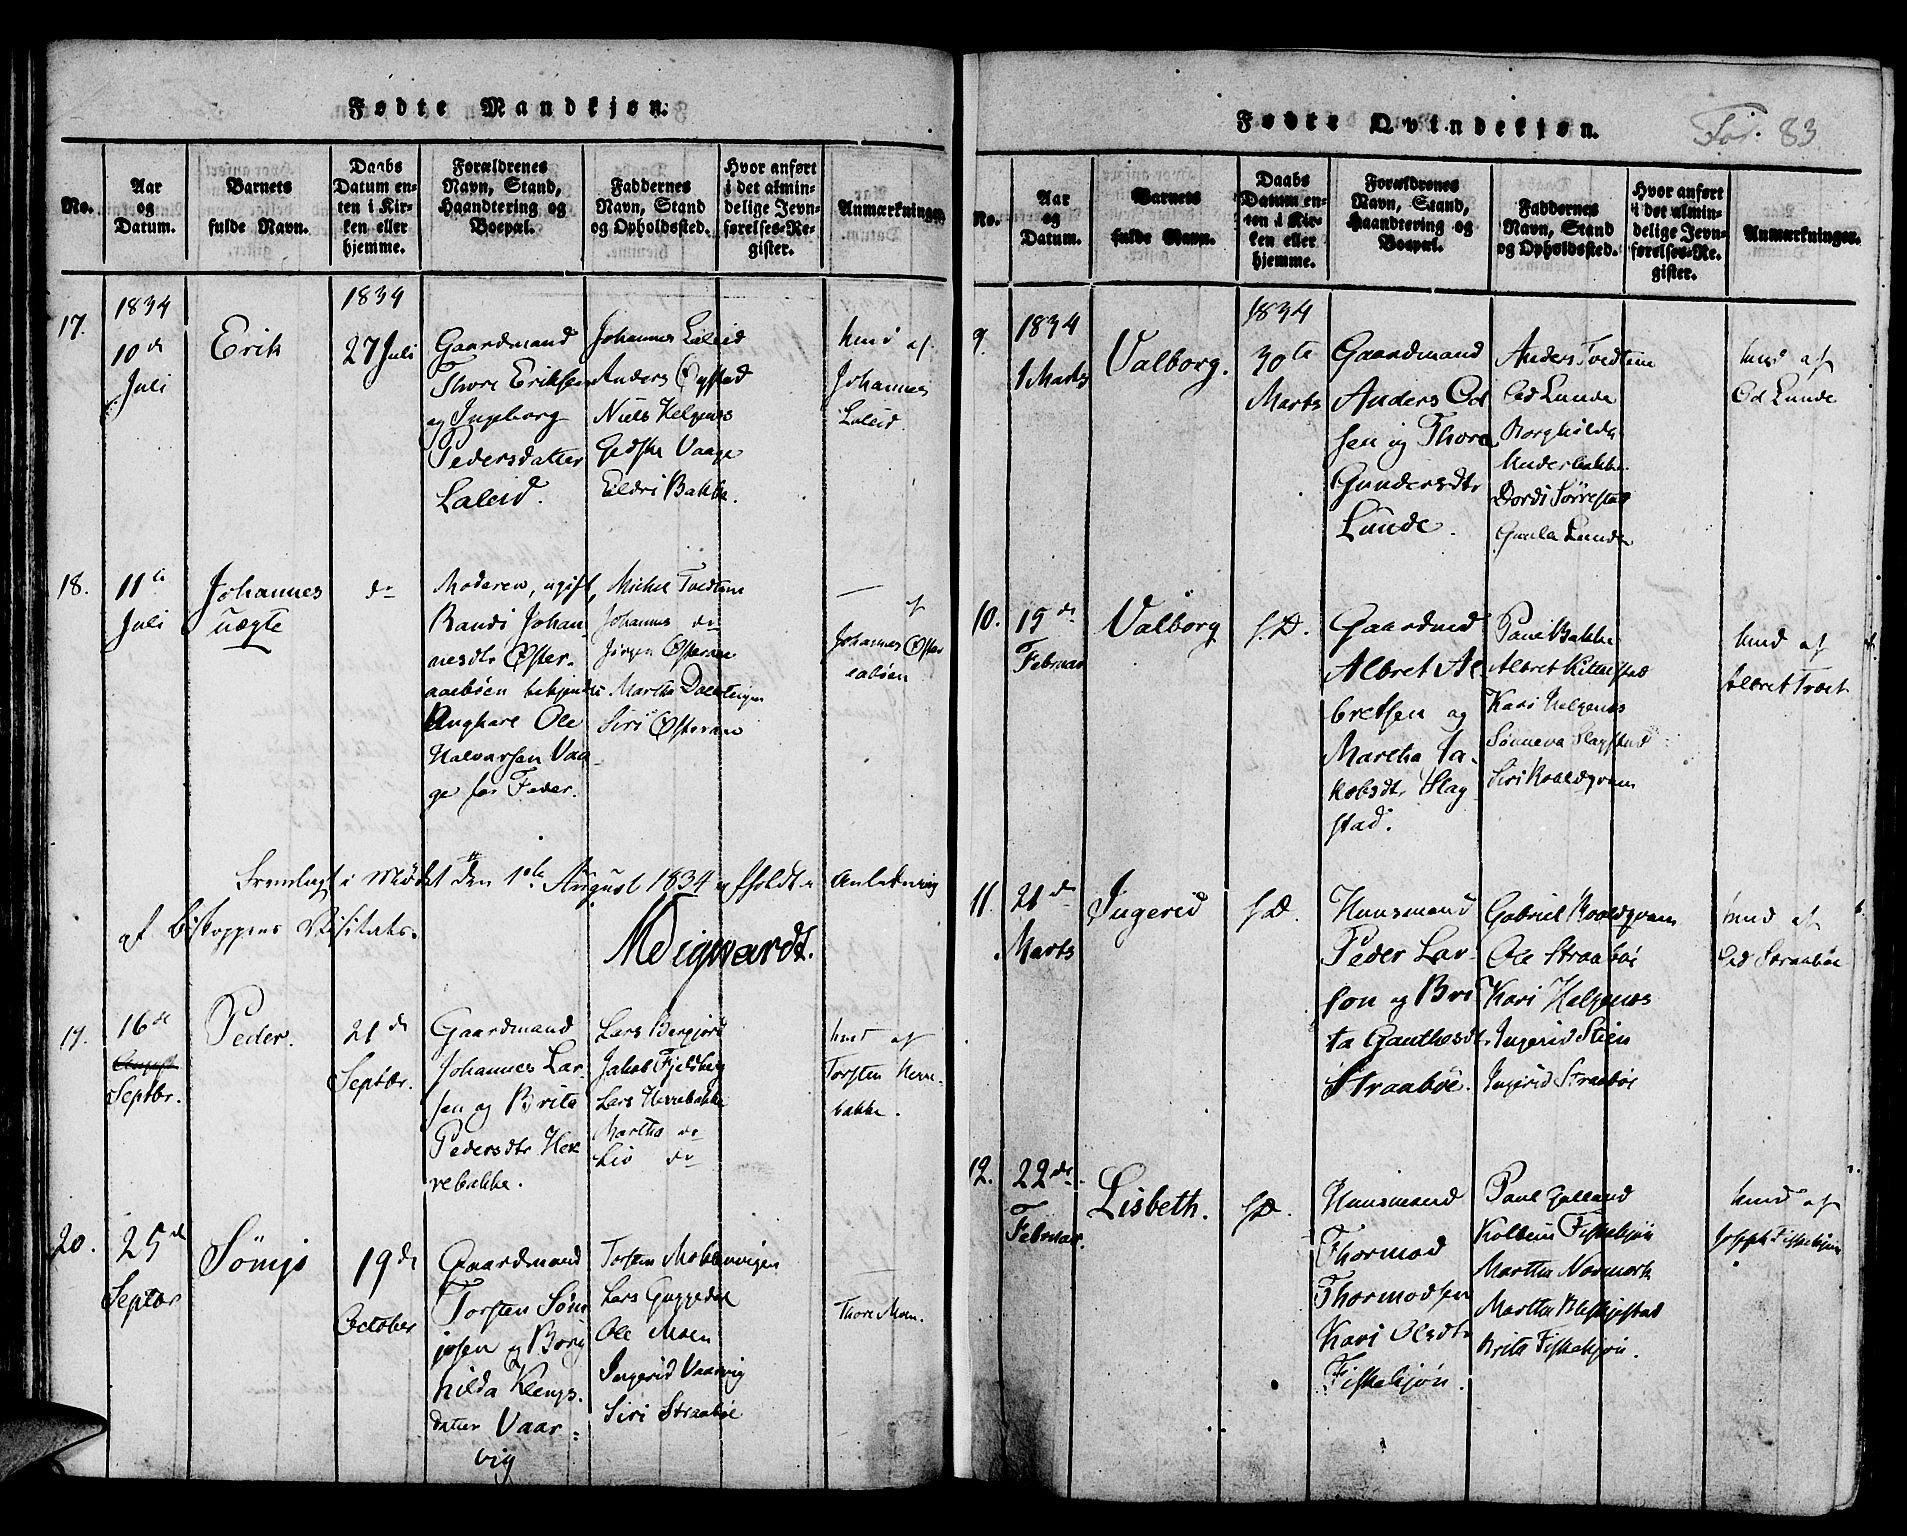 Fødte Mandkjøn.
No.
Aar
og
Datum.
Barnets
fulde Navn.
Daabs
Datum en-
ten i Kir-
ken eller
hjemme.
Forældrenes
Navn, Stand,
Haandtering og
Boepæl.
Faddernes
Navn, Stand
og Opholdsted.
Hvor anført
i det almin-
delige Jevn-
førelses-Re-
gister.
Anmærkninger.
17.
1834
10de
Juli
Erik
1834
27 Juli
Gaardmand
Thore Eriksen
og Ingeborg
Pedersdatter
Laleid.
Johannes Laleid
Anders Øystad
Niels Helgenes
Gidske Vaage
Eldri Bakke.
hmd af
Johannes
Laleid
18.
11te
Juli
Johannes
uægte
do
Moderen, ugift,
Randi Johan-
nesdtr Øster-
aaebøen
Ole
Halvorsen Vaa-
ge for Fader.
Michel Tvedten
Johannes do
Jørgen Østeraae
Martha
Siri Østeraae
af
Johannes Øster
eabøen
Fremlagt i Mødet den 1ste August 1834 afholdt i Anledning
af Bispoppens Visitats.
19.
16de
Septbr.
Peder.
21de
Septbr.
Gaardmand
Johannes Lar-
sen og Brita
Pedersdtr Her
rebakke.
Lars Bergjord
Jakob Fjeldberg
Lars Herrebakke
Martha do
Liv do
hmd af
Torsten Herre-
bakke.
20.
25de
Septbr
Sønnje
19de
October
Gaardmand
Torsten Søn
jesen og Borg
hilda Klengs-
datter Vaar-
vig
Torsten
Lars Guggedal
Ole Moen
Ingerid Vaarvig
Siri Straabøe
Thore Moen.
Fødte Qvindekjøn.
Fol. 83
No.
Aar
og
Datum.
Barnets
fulde Navn.
Daabs
Datum en-
ten i Kir-
ken eller
hjemme.
Forældrenes
Navn, Stand,
Haandtering og
Boepæl.
Faddernes
Navn, Stand
og Opholdsted.
Hvor anført
i det almin-
delige Jevn-
førelses-Re-
gister.
Anmærkninger.
9.
1834
1 Marts
Valborg.
1834
30te
Marts
Gaardmand
Anders Od
sen og Thora
Gundersdtr
Lunde.
Anders Tvedten
Od Lunde
Borghilda
Underbakke
Dordi Sørrestad
Gunla Lunde
hmd af
Od Lunde
10.
15de
Februar
Valborg
s.D.
Gaardmd
Albret Al-
bretsen og
Martha Ja-
kobsdtr Slag
stad.
Poul Bakke
Albret
Kari Helgenes
Sønneva Slagstad
Siri Roaldqvam
hmd af
Albret Tvæit
11.
21de
Marts
Ingerid
s.D.
Huusmand
Peder Lar-
son og Bri
ta Gauthesdtr
Straabøe.
Gabriel Roaldqvam
Ole Straabøe
Kari Helgenes
Ingerid Stien
Ingerid Straabøe
hmd af
Od Straabøe
12.
22de
Februar.
Lisbeth.
s.D.
Huusmand
Thormod
Thormodsen
Kari Olsdtr
Fiskekjøn.
Paul
Kolbein Fiskekjøn
Martha Normork
Martha
Brita Fiskekjøn.
hmd af
Joseph Fiskekjøn